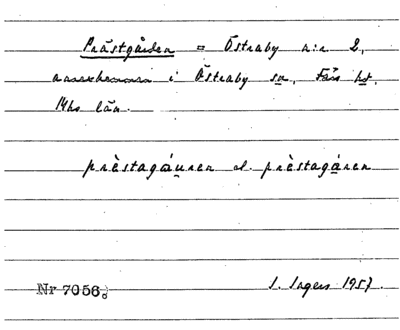 Prästgården = Östraby n:r 2,
annexhemman i Östraby sn, Färs hd,
Mhs län.
prèstagáuren el. prèstagáren
Nr 7056. I. Ingers 1957.